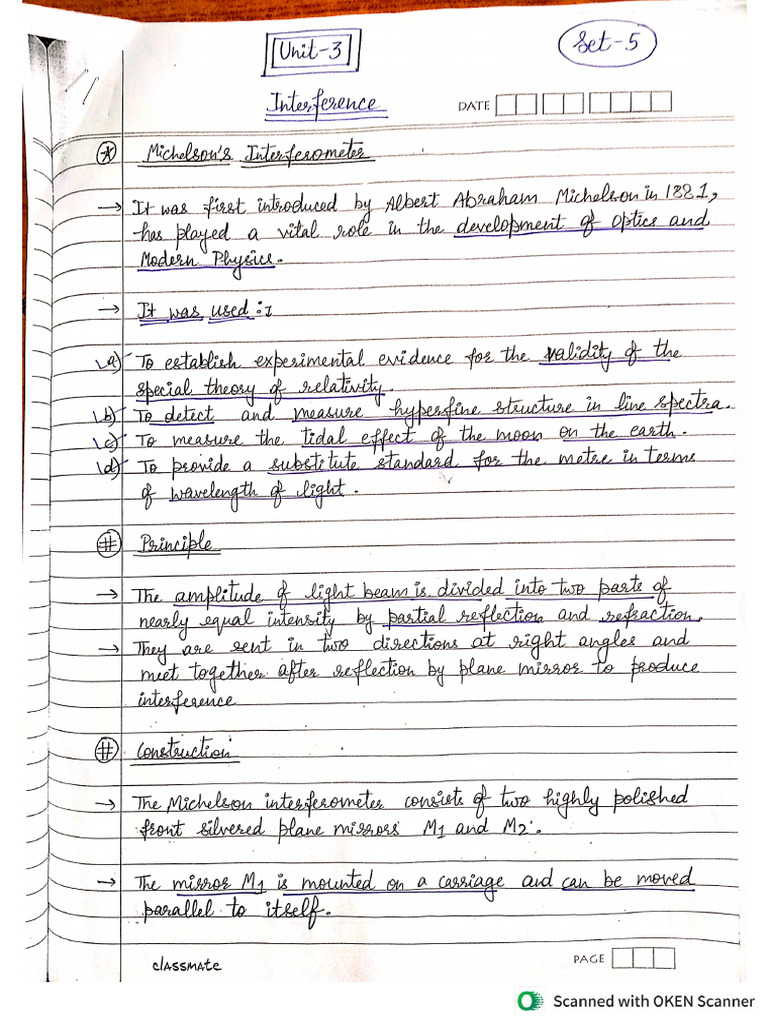 Unit-3
Set-5
Interference
DATE
Michelson's Interferometer
→ It was first introduced by Albert Abraham Michelson in 1881,
has played a vital role in the development of Optics and
Modern Physics.
→ It was used :-
(a) To establish experimental evidence for the validity of the
special theory of relativity.
(b) To detect and measure hyperfine structure in line spectra.
(c) To measure the tidal effect of the moon on the earth.
(d) To provide a substitute standard for the metre in terms
of wavelength of light.
# Principle
→ The amplitude of light beam is divided into two parts of
nearly equal intensity by partial reflection and refraction.
→ They are sent in two directions at right angles and
meet together after reflection by plane mirror to produce
interference
# Construction
→ The Michelson interferometer consists of two highly polished
front silvered plane mirrors M1 and M2.
→ The mirror M1 is mounted on a carriage and can be moved
parallel to itself.
classmate
PAGE
Scanned with OKEN Scanner